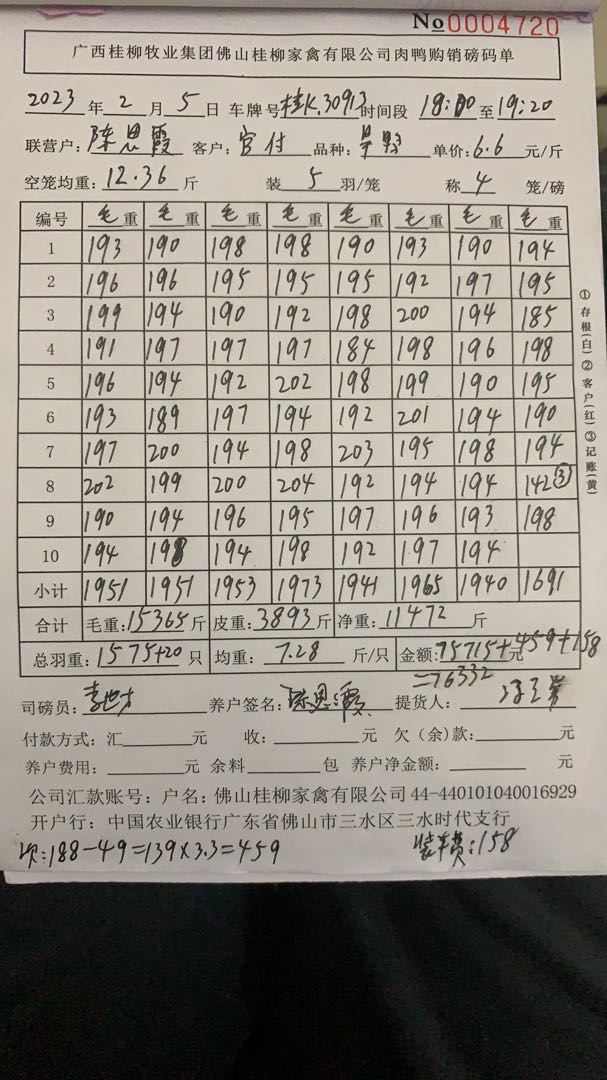 No0004720
广西桂柳牧业集团佛山桂柳家禽有限公司肉鸭购销磅码单
2023年2月5日 车牌号桂K.30913时间段 18:00至19:20
联营户:陈思霞 客户:官付 品种: 单价:6.6元/斤
空笼均重:12.36斤 装5羽/笼 称4笼/磅
编号 毛重 毛重 毛重 毛重 毛重 毛重 毛重 毛重
1 193 190 198 198 190 193 190 194
2 196 196 195 195 195 192 197 195
3 199 194 190 192 198 200 194 185
4 191 197 197 197 184 198 196 198
5 196 194 192 202 198 199 190 195
6 193 189 197 194 192 201 194 190
7 197 200 194 198 203 195 198 194
8 202 199 200 204 192 194 194 142③
9 190 194 196 195 197 196 193 198
10 194 198 194 198 192 197 194
小计 1951 1951 1953 1973 1941 1965 1940 1691
合计 毛重:15365斤 皮重:3893斤 净重:11472斤
总羽重:1575+20只 均重:7.28斤/只 金额:75715+元459+158
=76332
司磅员: 养户签名:陈思霞 提货人:
付款方式:汇 元 收: 元 欠(余)款: 元
养户费用: 元 余料 包 养户净金额: 元
公司汇款账号:户名:佛山桂柳家禽有限公司44-440101040016929
开户行:中国农业银行广东省佛山市三水区三水时代支行
次:188-49=139×3.3=459 装车费:158
①存根(白)②客户(红)③记账(黄)